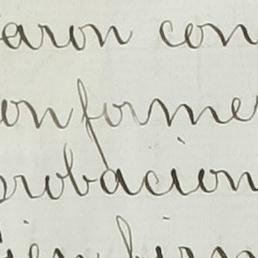 aron con
onforme
probacion